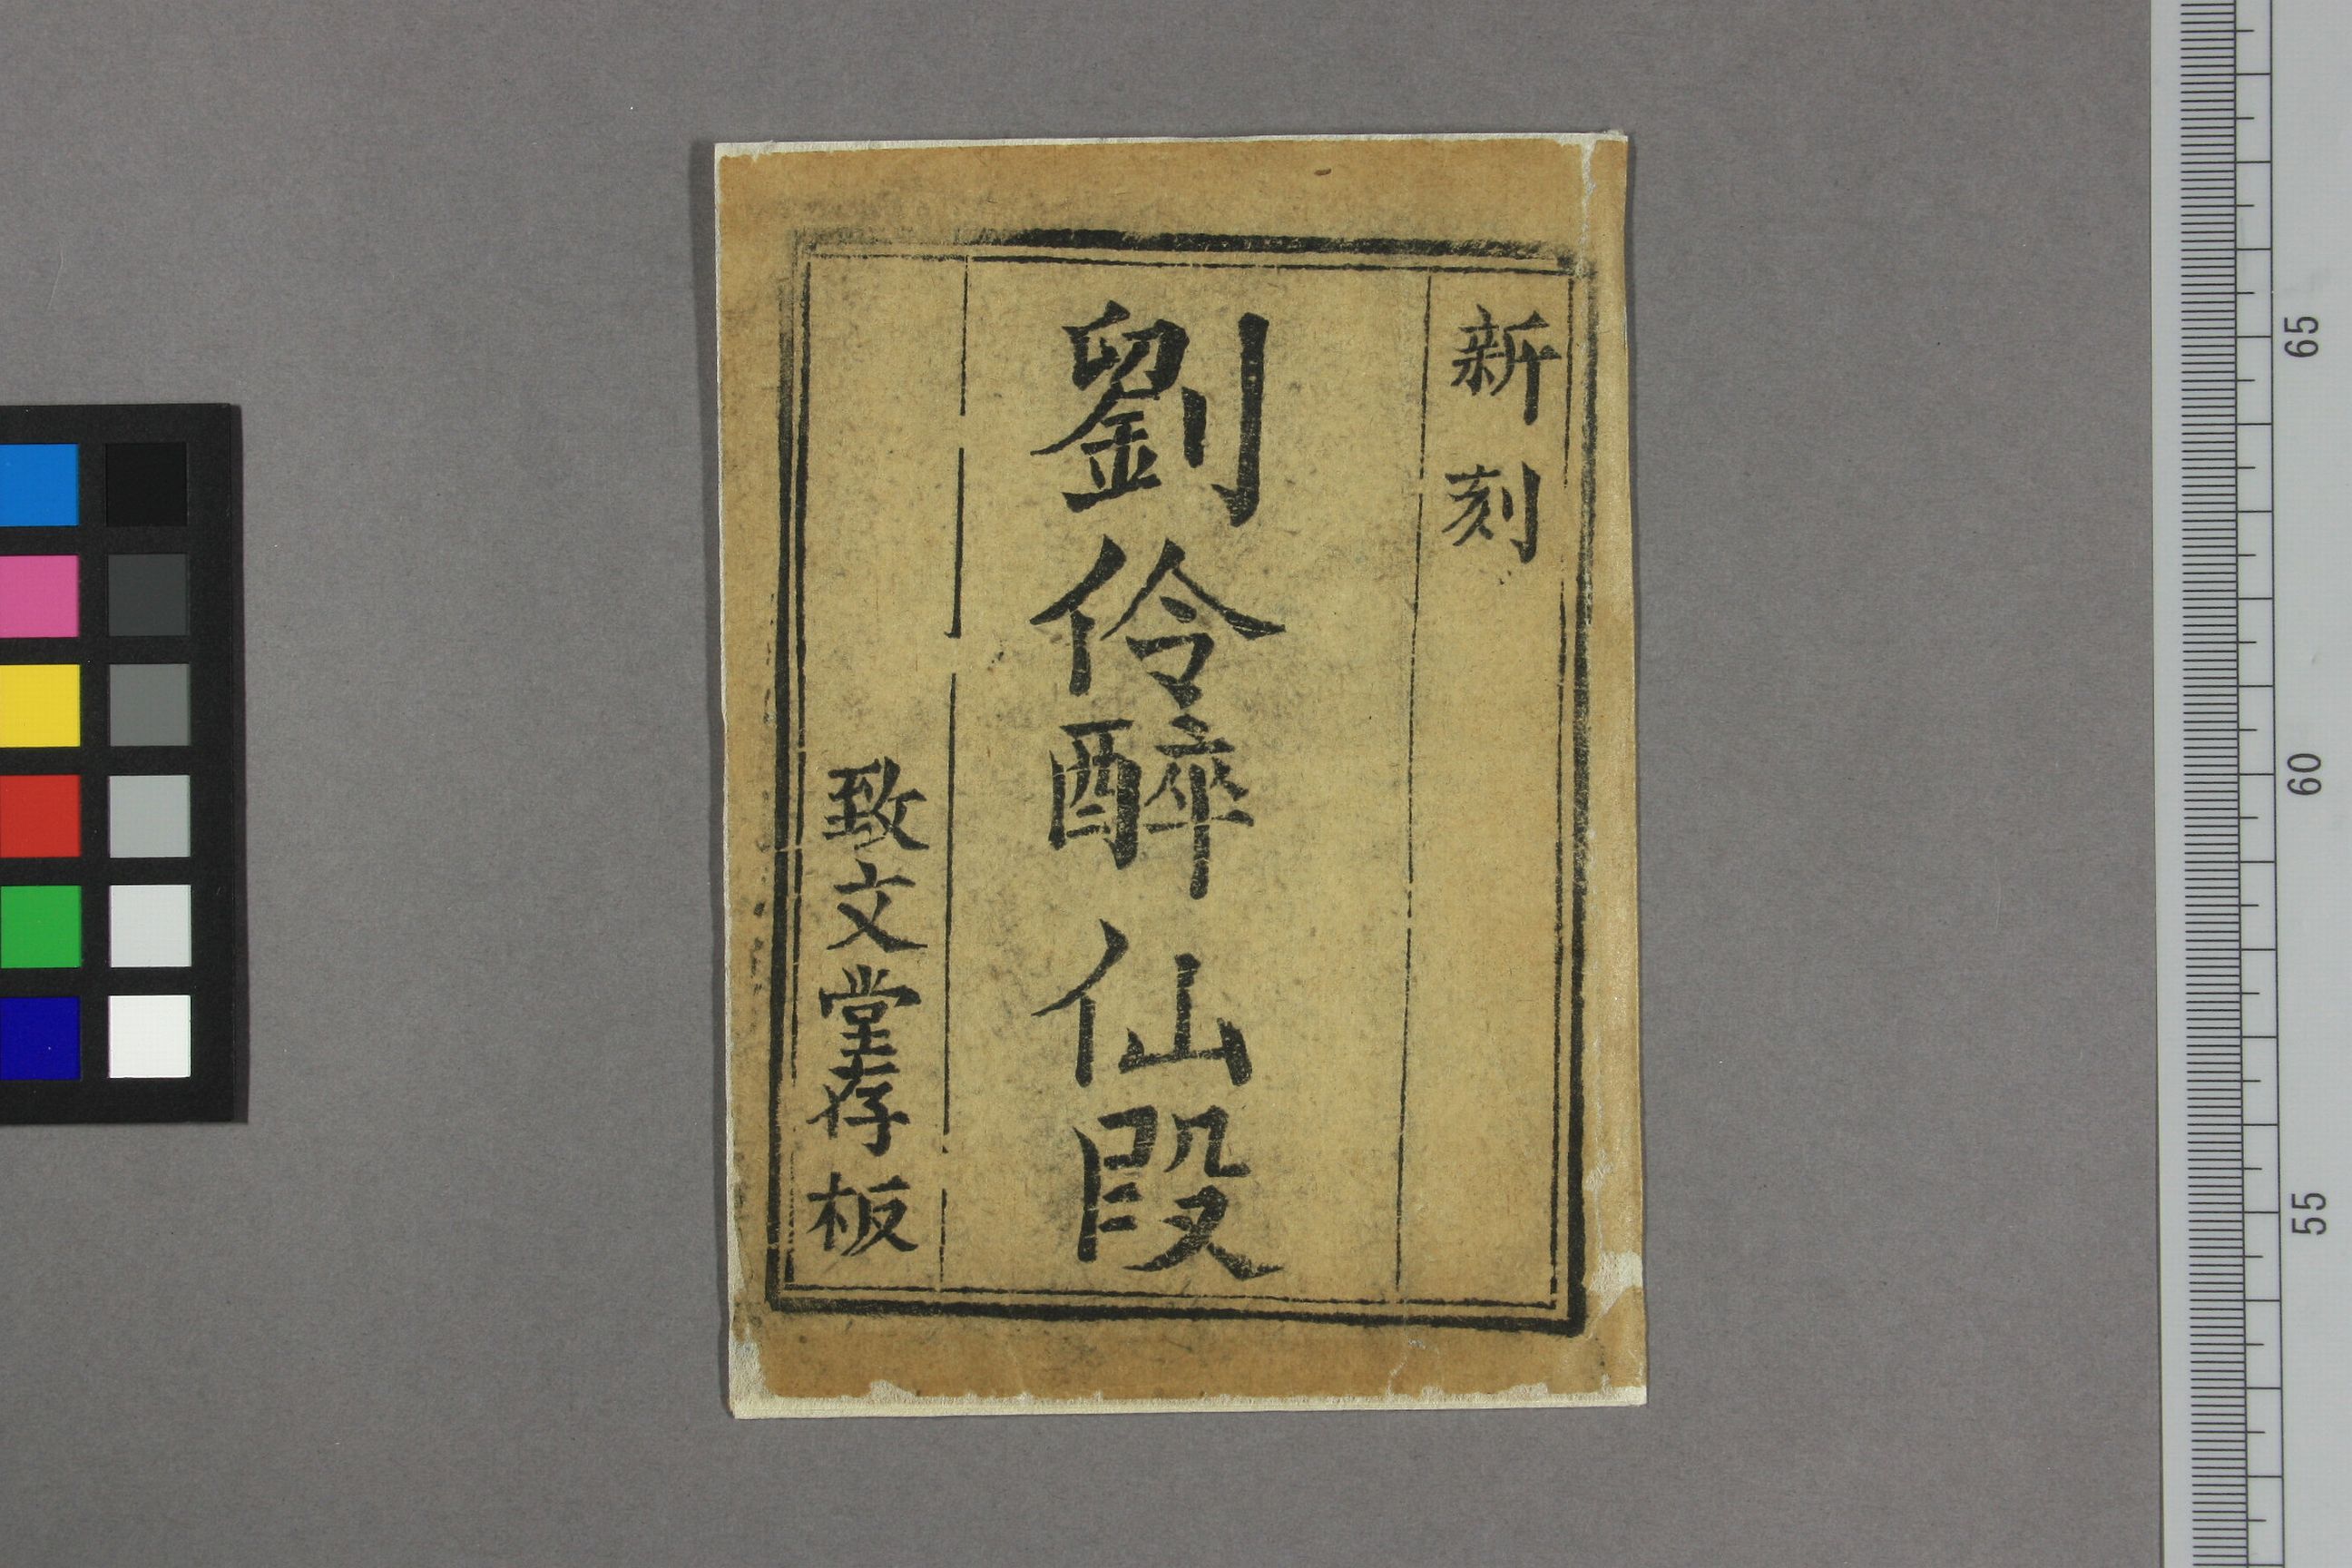 新刻
劉伶醉仙段
致文堂存板
65
60
55